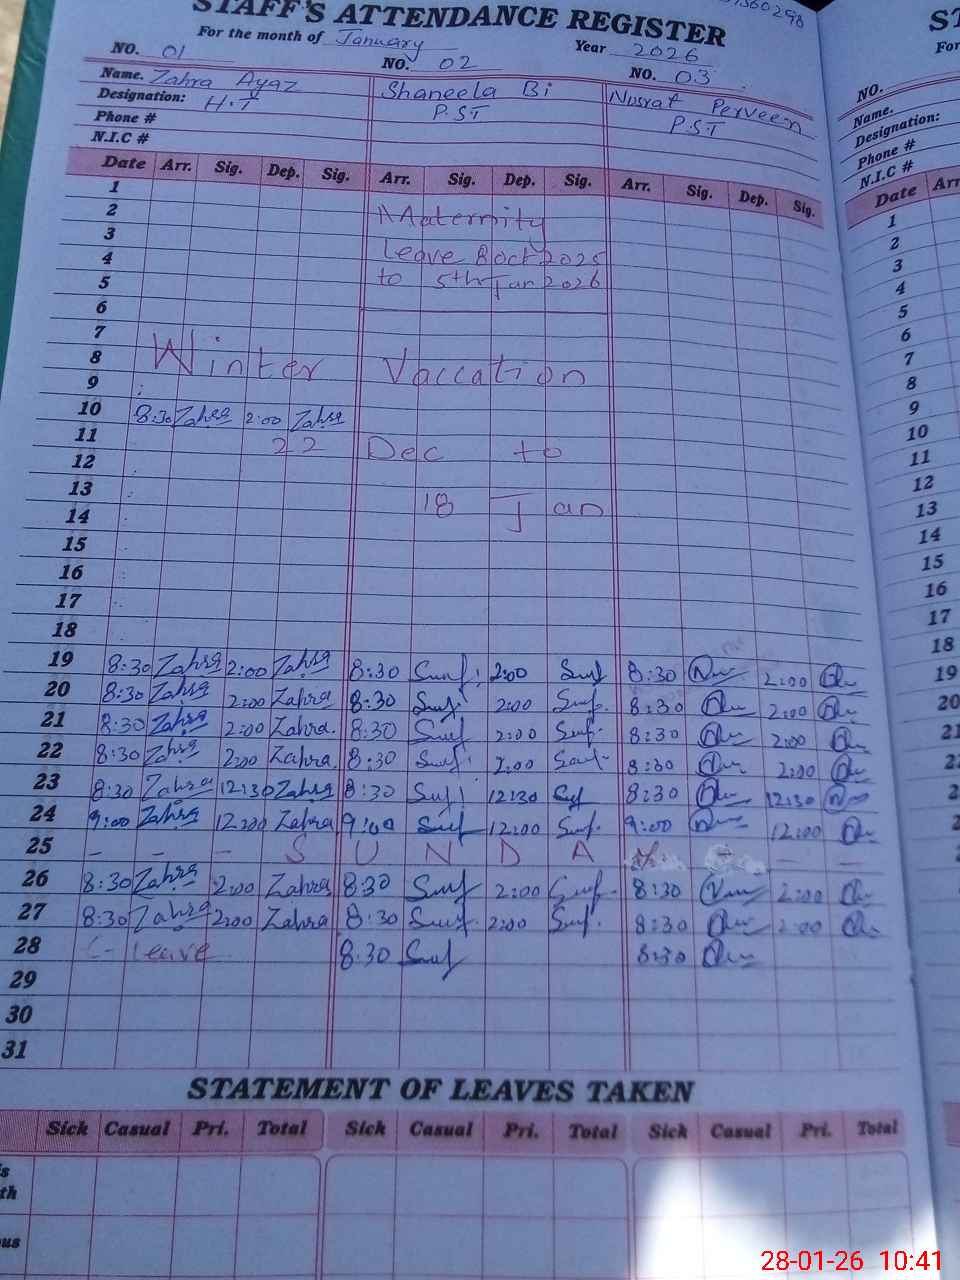 STAFF'S ATTENDANCE REGISTER
For the month of January Year 2026
NO. 01 NO. 02 NO. 03
Name. Zahra Ayaz Shaneela Bi Nusrat Perveen
Designation: H.T P.ST P.ST
Phone #
N.I.C #
Date Arr. Sig. Dep. Sig. Arr. Sig. Dep. Sig. Arr. Sig. Dep. Sig.
1
2 Maternity
3
4 Leave 8 oct 2025
5 to 5th Jan 2026
6
7
8 Winter Vaccation
9
10 8:30 Zahra 2:00 Zahra
11 22 Dec to
12
13
14 18 Jan
15
16
17
18
19 8:30 Zahra 2:00 Zahra 8:30 2:00 8:30 2:00
20 8:30 Zahra 2:00 Zahra 8:30 2:00 8:30 2:00
21 8:30 Zahra 2:00 Zahra. 8:30 2:00 8:30 2:00
22 8:30 Zahra 2:00 Zahra 8:30 2:00 8:30 2:00
23 8:30 Zahra 12:30 Zahra 8:30 12:30 8:30 12:30
24 9:00 Zahra 12:00 Zahra 9:00 12:00 9:00 12:00
25 - - - S U N D A - -
26 8:30 Zahra 2:00 Zahra 8:30 2:00 8:30 2:00
27 8:30 Zahra 2:00 Zahra 8:30 2:00 8:30 2:00
28 C-leave 8:30 8:30
29
30
31
STATEMENT OF LEAVES TAKEN
Sick Casual Pri. Total Sick Casual Pri. Total Sick Casual Pri. Total
NO.
Name.
Designation:
Phone #
N.I.C #
Date Arr
1
2
3
4
5
6
7
8
9
10
11
12
13
14
15
16
17
18
19
20
28-01-26 10:41